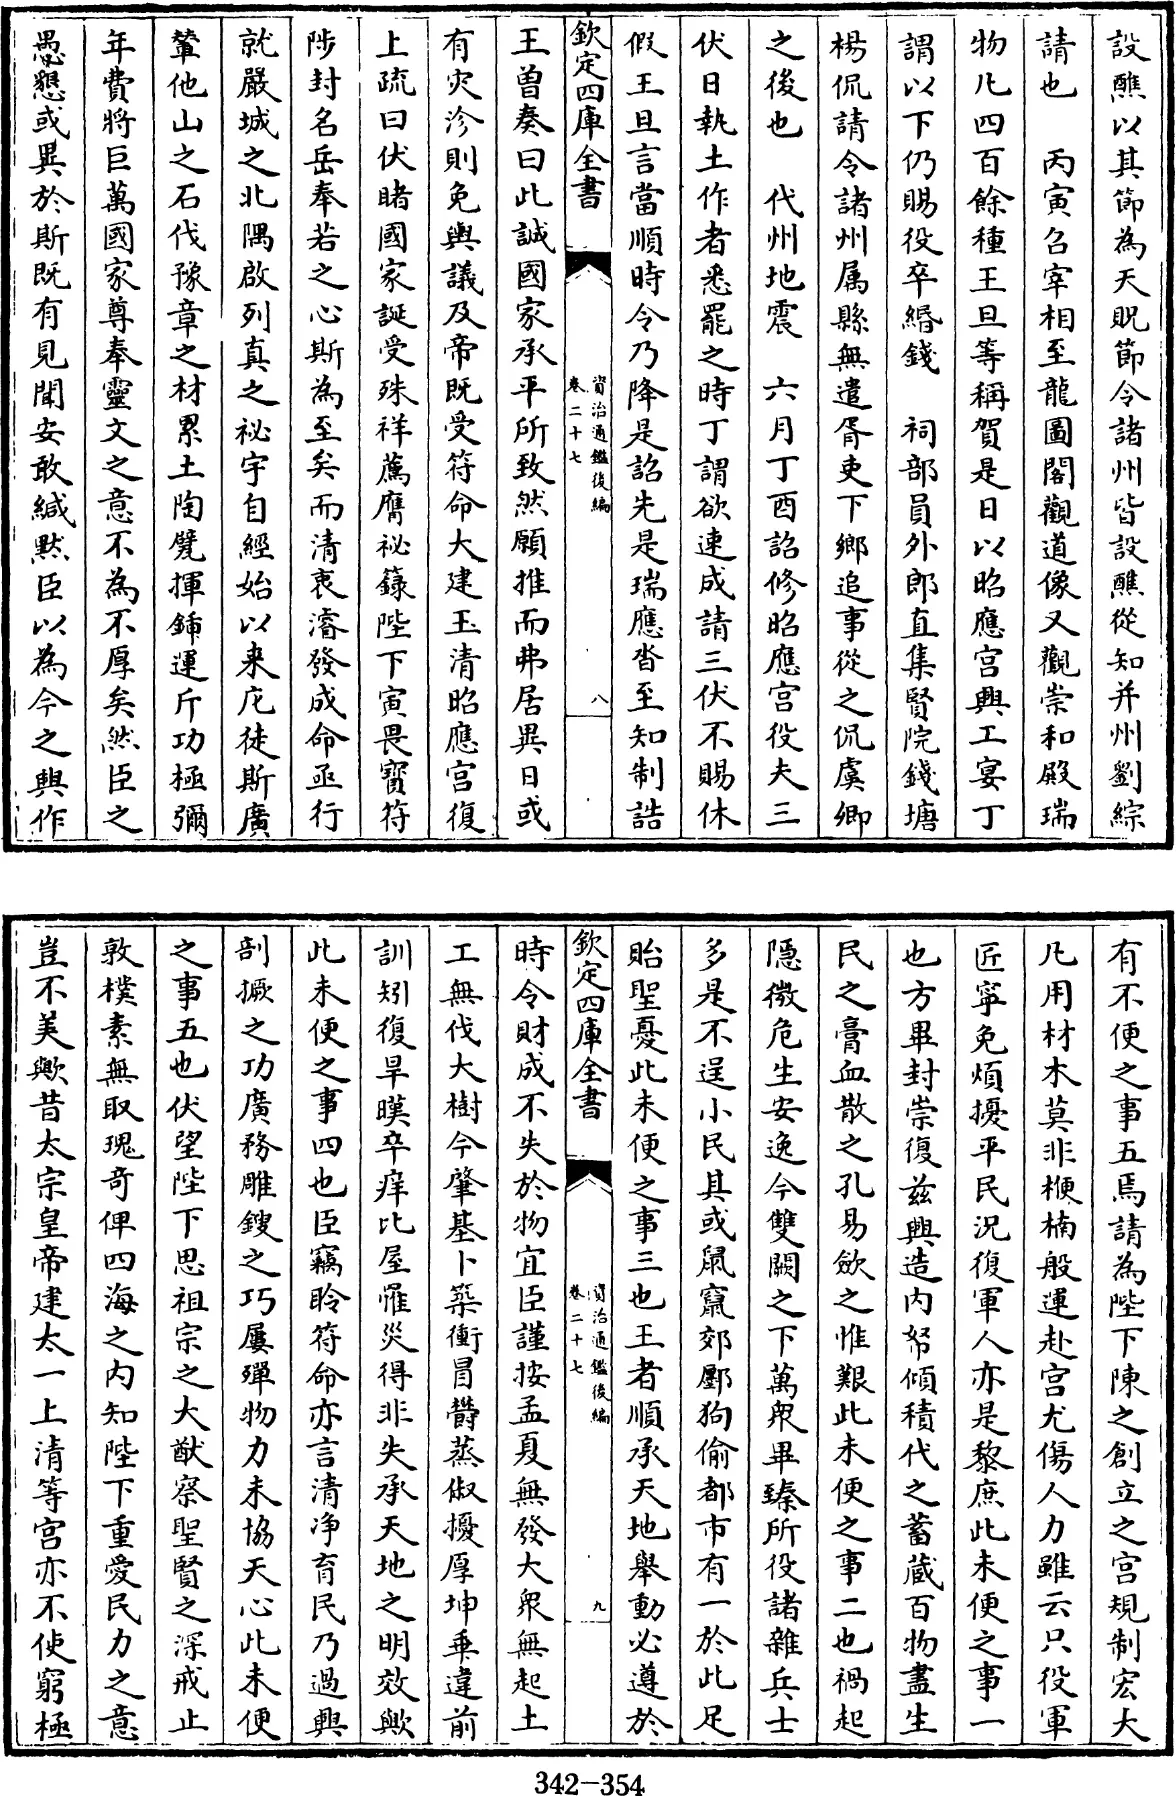 設醮以其節為天貺節令諸州皆設醮從知并州劉綜
請也　丙寅召宰相至龍圖閣觀道像又觀崇和殿瑞
物凡四百餘種王旦等稱賀是日以昭應宫興工宴丁
謂以下仍賜役卒緡錢　祠部員外郎直集賢院錢塘
楊侃請令諸州属縣無遣胥吏下鄉追事從之侃虞卿
之後也　代州地震　六月丁酉詔修昭應宫役夫三
伏日執土作者悉罷之時丁謂欲速成請三伏不賜休
假王旦言當順時令乃降是詔先是瑞應沓至知制誥
欽定四庫全書
資治通鑑後編
卷二十七
八
王曽奏曰此誠國家承平所致然願推而弗居異日或
有灾沴則免輿議及帝既受符命大建玉清昭應宫復
上疏曰伏睹國家誕受殊祥薦膺祕籙陛下寅畏寳符
陟封名岳奉若之心斯為至矣而清衷濬發成命亟行
就嚴城之北隅啟列真之祕宇自經始以来庀徒斯廣
輦他山之石伐豫章之材累土陶甓揮鍤運斤功極彌
年費將巨萬國家尊奉靈文之意不為不厚矣然臣之
愚懇或異於斯既有見聞安敢緘黙臣以為今之興作
有不便之事五焉請為陛下陳之創立之宫規制宏大
凡用材木莫非楩楠般運赴宫尤傷人力雖云只役軍
匠寧免煩擾平民況復軍人亦是黎庶此未便之事一
也方畢封崇復兹興造内帑傾積代之蓄蔵百物盡生
民之膏血散之孔易歛之惟艱此未便之事二也禍起
隱微危生安逸今雙闕之下萬衆畢臻所役諸雜兵士
多是不逞小民其或鼠竄郊鄽狗偷都市有一於此足
貽聖憂此未便之事三也王者順承天地舉動必遵於
欽定四庫全書
資治通鑑後編
卷二十七
九
時令財成不失於物宜臣謹按孟夏無發大衆無起土
工無伐大樹今肇基卜築衝冒欝蒸俶擾厚坤乗違前
訓矧復旱暵卒痒比屋罹災得非失承天地之明效歟
此未便之事四也臣竊聆符命亦言清净育民乃過興
剖掘之功廣務雕鎪之巧屢殫物力未協天心此未便
之事五也伏望陛下思祖宗之大猷察聖賢之深戒止
敦樸素無取瑰奇俾四海之内知陛下重愛民力之意
豈不美歟昔太宗皇帝建太一上清等宫亦不使窮極
342-354